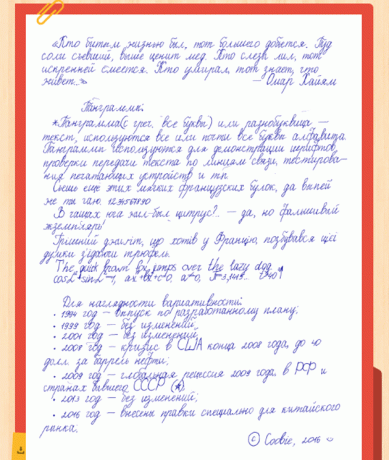 «Кто битым жизнью был, тот большего добьётся. Пуд
соли съевший, выше ценит мёд. Кто слёзы лил, тот
искренней смеётся. Кто умирал, тот знает, что
живёт.»
— Омар Хайям
Панграммы.
*Панграмма(с греч. "все буквы") или разнобуквица —
текст, использующ все или почти все буквы алфавита
Панграммы используются для демонстрации шрифтов,
проверки передачи текста по линиям связи, тестирова-
ния печатающих устройств и т.п.
Съешь ещё этих мягких французских булок, да выпей
же ты чаю. 1234567890
В чащах юга жил-был цитрус? — да, но фальшивый
экземпляръ!
Гришний джиґіт, що хотів у Францію, позбувався цієї
думки з'їдаючи трюфель.
The quick brown fox jumps over the lazy dog.
Для наглядности вариативности:
• 1994 год — выпуск по разработанному плану;
• 1999 год — без изменений;
• 2001 год — без изменений;
• 2008 год — кризис в США конца 2008 года, до 40
долл. за баррель нефти;
• 2009 год — глобальная рецессия 2009 года в РФ и
странах бывшего СССР
• 2013 год — без изменений;
• 2016 год — внесены правки специально для китайского
рынка.
© Coobic, 2016